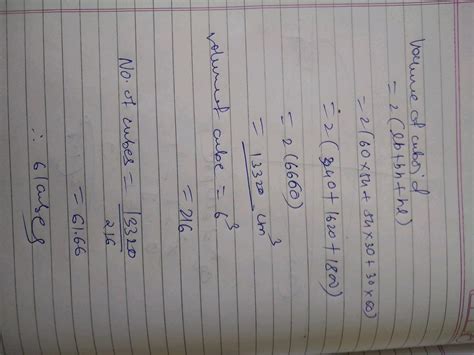 Volume of cuboid
= 2 (lb + bh + hl)
= 2 (60 × 54 + 54 × 30 + 30 × 60)
= 2 (3240 + 1620 + 1800)
= 2 (6660)
= 13320 cm³
Volume of cube = 6³
= 216
No. of cubes = 13320
216
= 61.66
∴ 61 cubes